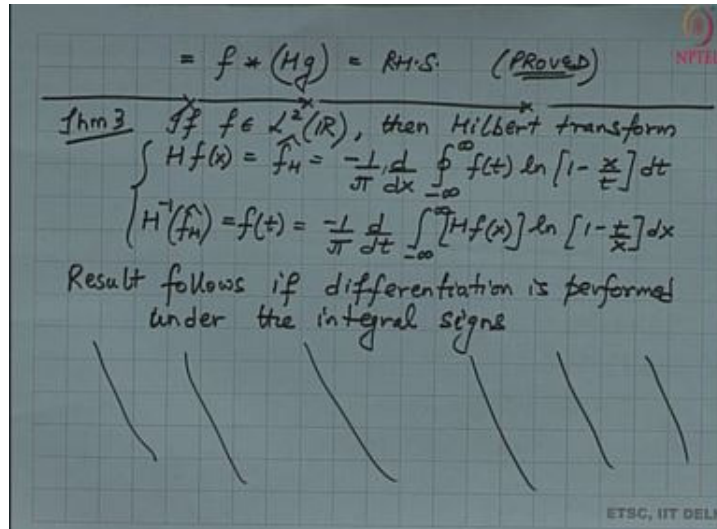 = f * (Hg) = R.H.S. (PROVED)
NPTEL
Thm 3 If f ∈ L²(R), then Hilbert transform
{ Hf(x) = f̂_H = -1/π d/dx ∮_{-∞}^{∞} f(t) ln [1 - x/t] dt
H⁻¹(f̂_H) = f(t) = -1/π d/dt ∫_{-∞}^{∞} [Hf(x)] ln [1 - t/x] dx
Result follows if differentiation is performed
under the integral signs
ETSC, IIT DELH